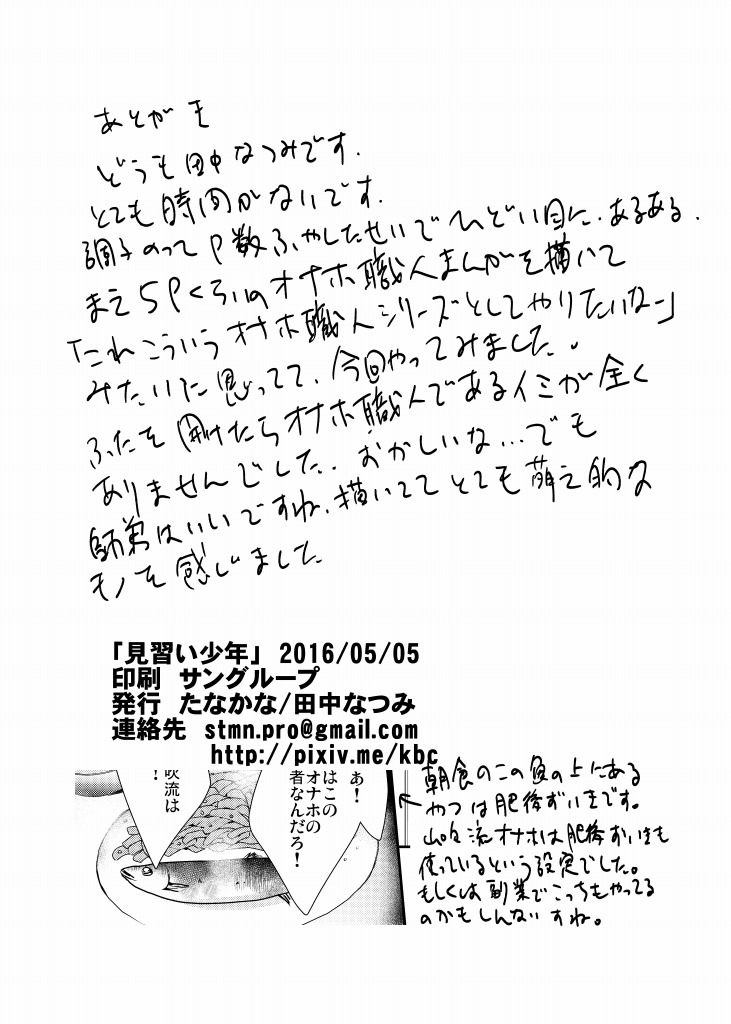 あとがき
どうも田中なつみです.
とても時間がないです.
調子のってP数ふやしたせいでひどい目に.あるある.
まえ5Pくらいのオナホ職人まんがを描いて
「これこういうオナホ職人シリーズとしてやりたいなー」
みたいに思ってて、今回やってみました。
ふたを開けたらオナホ職人であるイミが全く
ありませんでした.おかしいな…でも
師弟はいいですね.描いててとても萌え的な
モノを感じました
「見習い少年」 2016/05/05
印刷 サングループ
発行 たなかな/田中なつみ
連絡先 stmn.pro@gmail.com
http://pixiv.me/kbc
ぁ!
はこの
オナホの
者なんだろ!
吹流は
!
朝食のこの魚の上にある
やつは肥後ずいきです。
流オナホは肥後ずいきも
使っているという設定でした。
もしくは副業でこっちもやってる
のかもしんないすね。